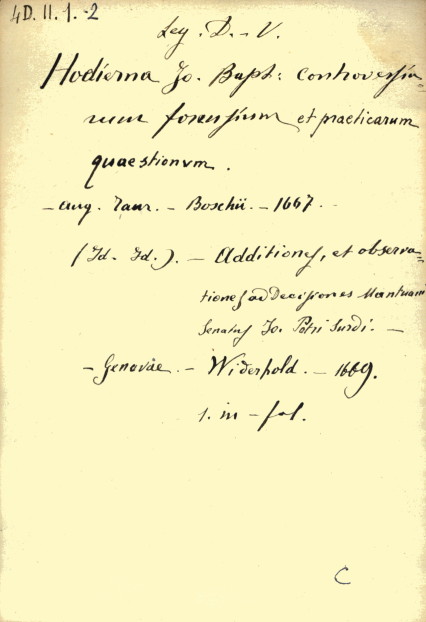 4D. II. 1.-2
Leg. D. V.
Hodierna Jo. Bapt: controversia-
rum forensium et practicarum
quaestionum.
- aug. Taur. - Boschii. - 1667.
(Id. Id.). - Additiones, et observa-
tiones ad Decisiones Mantuani
Senatus Jo. Petri Surdi. -
- Genovae. - Widerhold. - 1669.
1. in - fol.
C